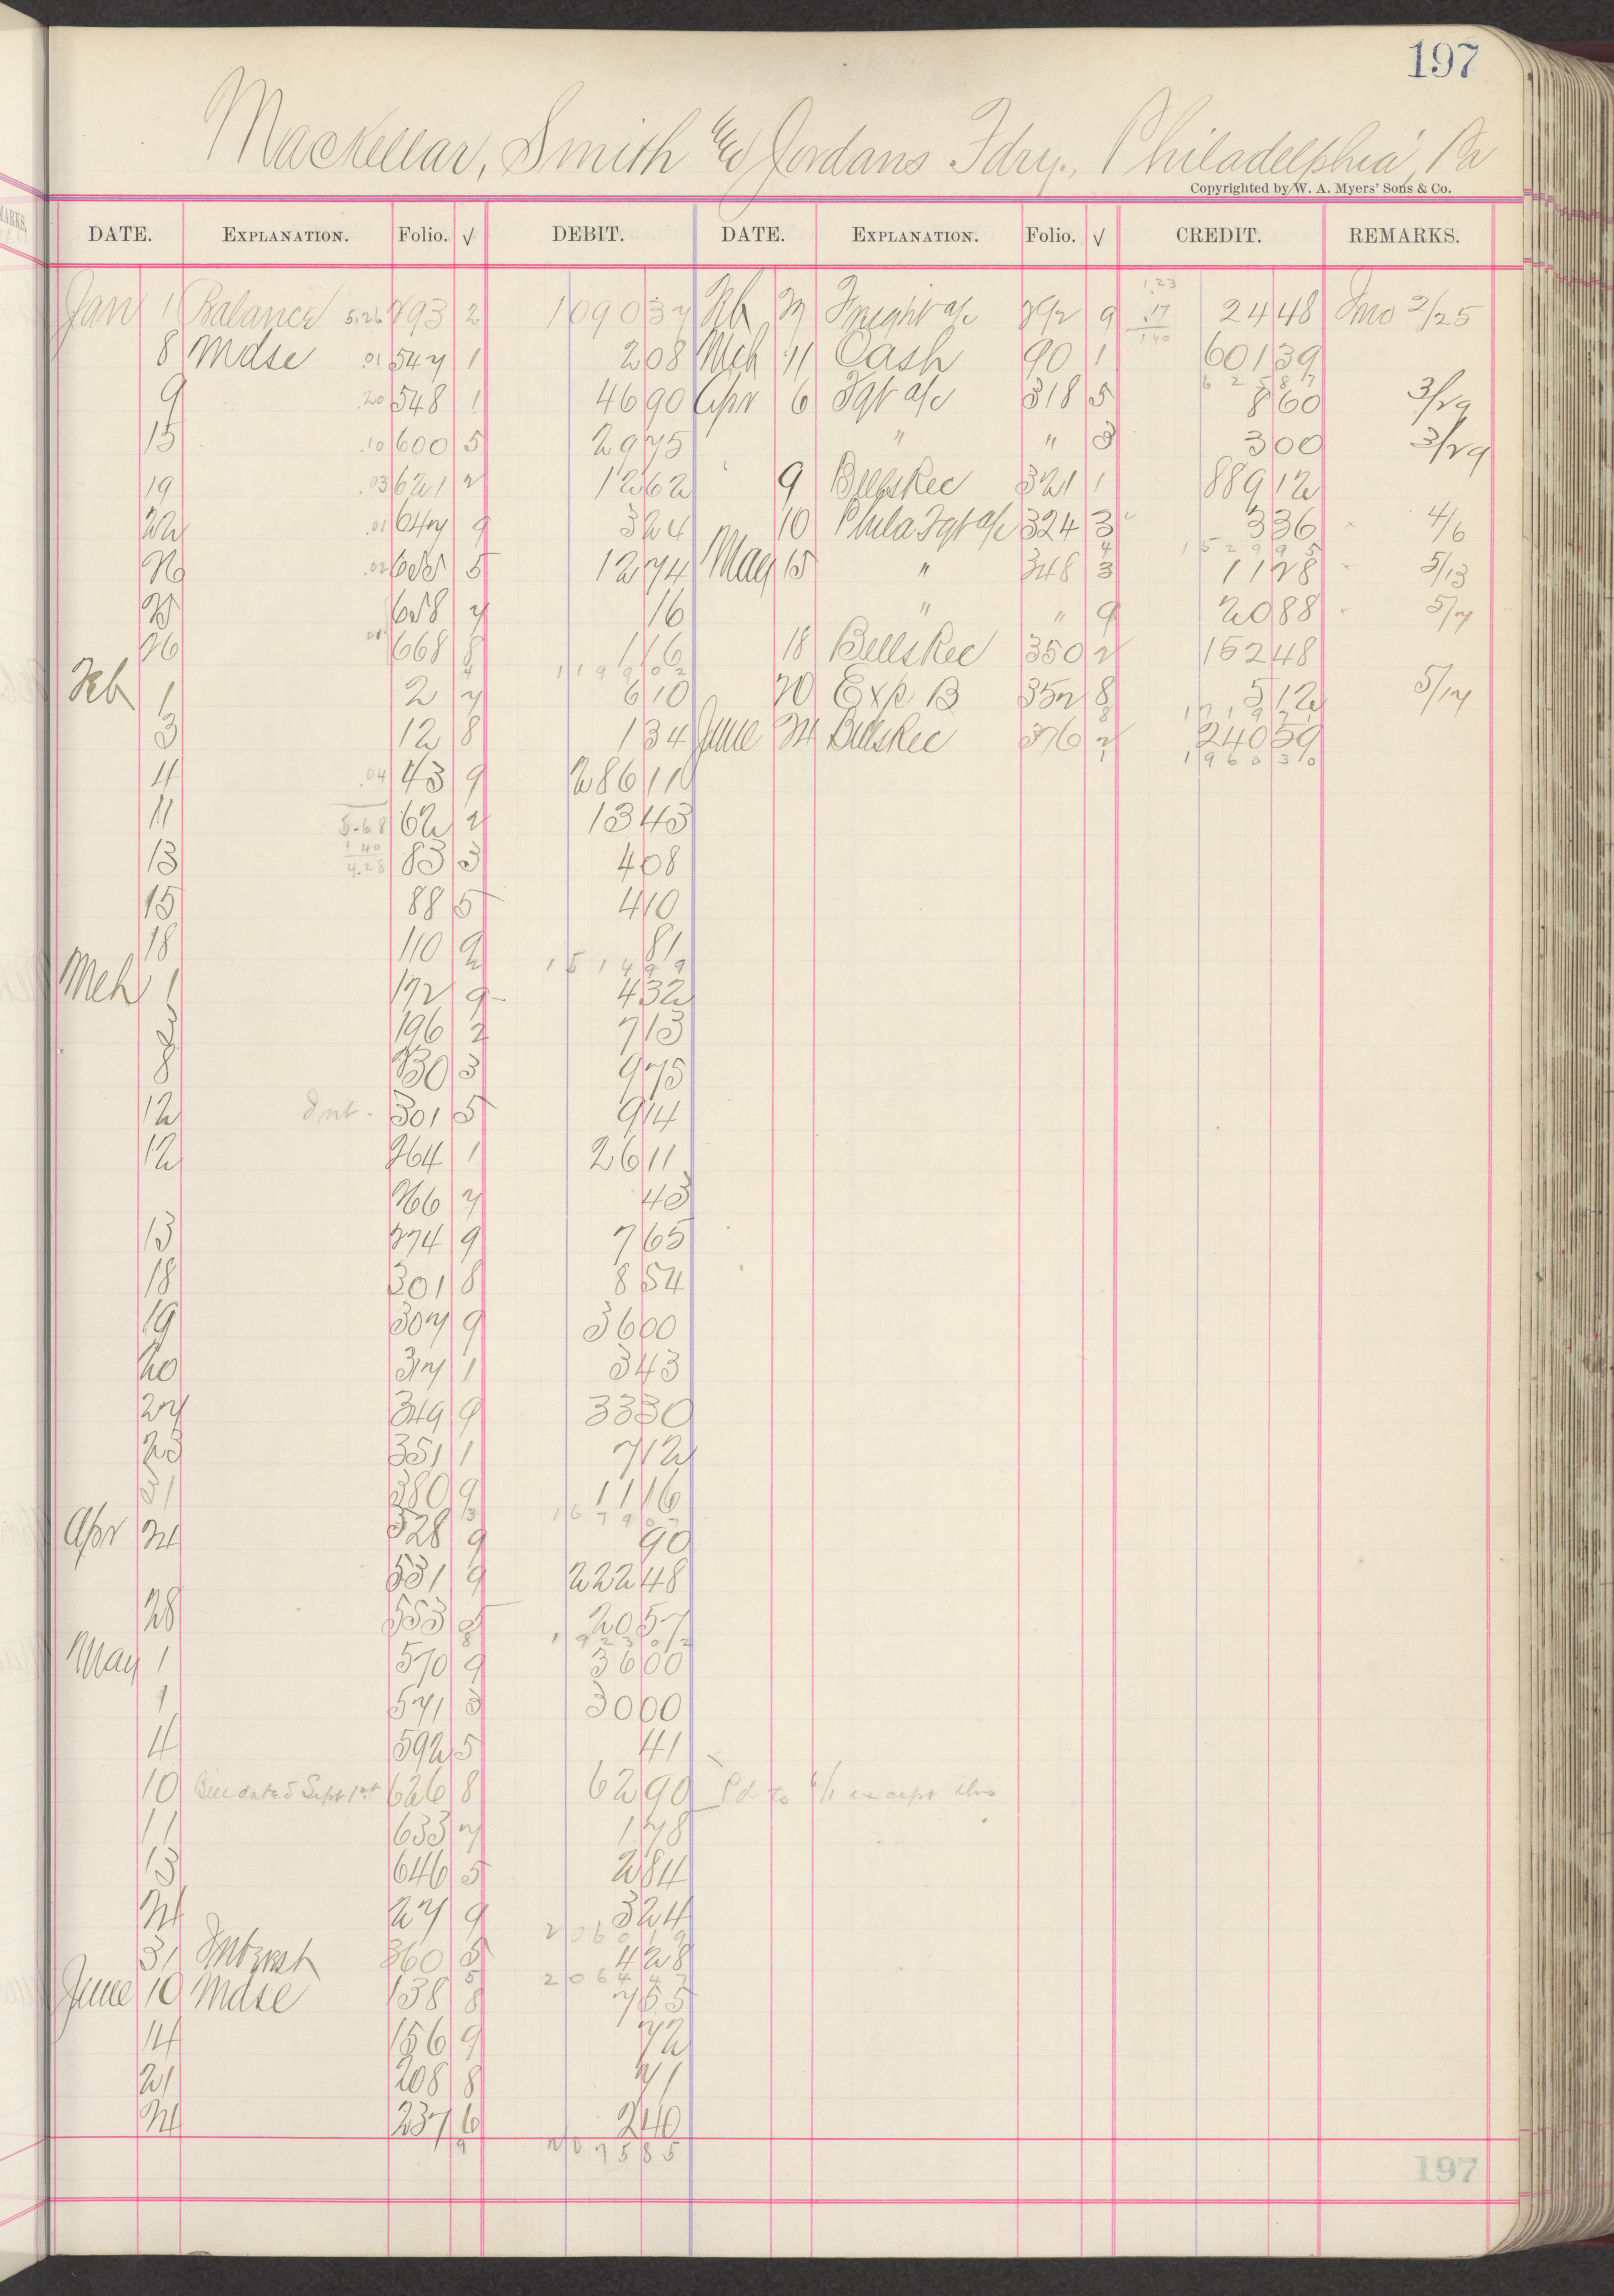 197
MacKellar, Smith & Jordans Fdry., Philadelphia, Pa
Copyrighted by W. A. Myers' Sons & Co.
DATE. EXPLANATION. Folio. √ DEBIT. DATE. EXPLANATION. Folio. √ CREDIT. REMARKS.
1.23
Jan 1 Balance 5.26 793 2 1090 37 Feb Freight a/c 892 9 .17 24 48 Imo 2/25
1 40
8 Mdse .01 547 1 2 08 Mch 11 Cash 90 1 601 39
6 2 5 8 7
9 .20 548 1 46 90 Apr 6 Fgt a/c 318 5 8 60 3/29
15 .10 600 5 29 75 " " 3 3 00 3/29
19 .03 621 2 12 62 9 Bills Rec 321 1 889 12
22 .01 647 9 3 24 10 Phila Fgt a/c 324 3 3 36 4/6
1 5 2 9 9 5
.02 5 12 74 May 15 " 348 3 11 28 5/13
658 7 16 " " 9 20 88 5/7
26 668 8 1 16 18 Bills Rec 350 2 152 48
Feb 1 2 7 6 10 20 Exp B 352 8 5 12 5/14
3 12 8 1 34 June 24 Bills Rec 376 2 240 59
1 9 6 0 3 0
4 .04 43 9 286 11
11 5.68 62 2 13 43
13 1 40 83 3 4 08
4.28
15 88 5 4 10
18 110 9 81
1 5 1 4 9 9
Mch 1 172 9 4 32
196 2 7 13
8 230 3 9 75
12 Int. 301 5 9 14
12 264 1 26 11
266 7 43
13 274 9 7 65
18 301 8 8 54
19 307 9 36 00
20 317 1 3 43
27 349 9 33 30
28 351 1 7 12
31 380 9 11 16
1 6 7 9 0 7
Apr 24 528 9 90
531 9 222 48
28 553 20 57
May 1 570 9 36 00
1 571 3 30 00
4 592 5 41
10 Bill dated Sept 1st 626 8 62 90 Pd to 6/1 except this
11 633 7 1 78
13 646 5 2 84
24 27 9 3 24
2 0 6 0 1 9
31 Interest 360 4 28
2 0 6 4 4 7
June 10 Mdse 138 8 7 55
14 156 9 72
21 208 8 41
24 237 6 2 40
2 0 7 5 8 5
197